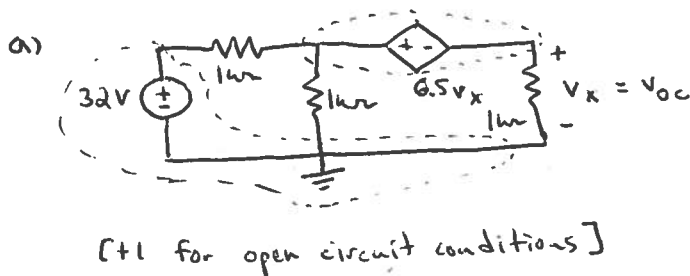 a)
1kΩ
+ -
+
32V
+
-
1kΩ
6.5Vx
1kΩ
Vx = Voc
-
[+1 for open circuit conditions]